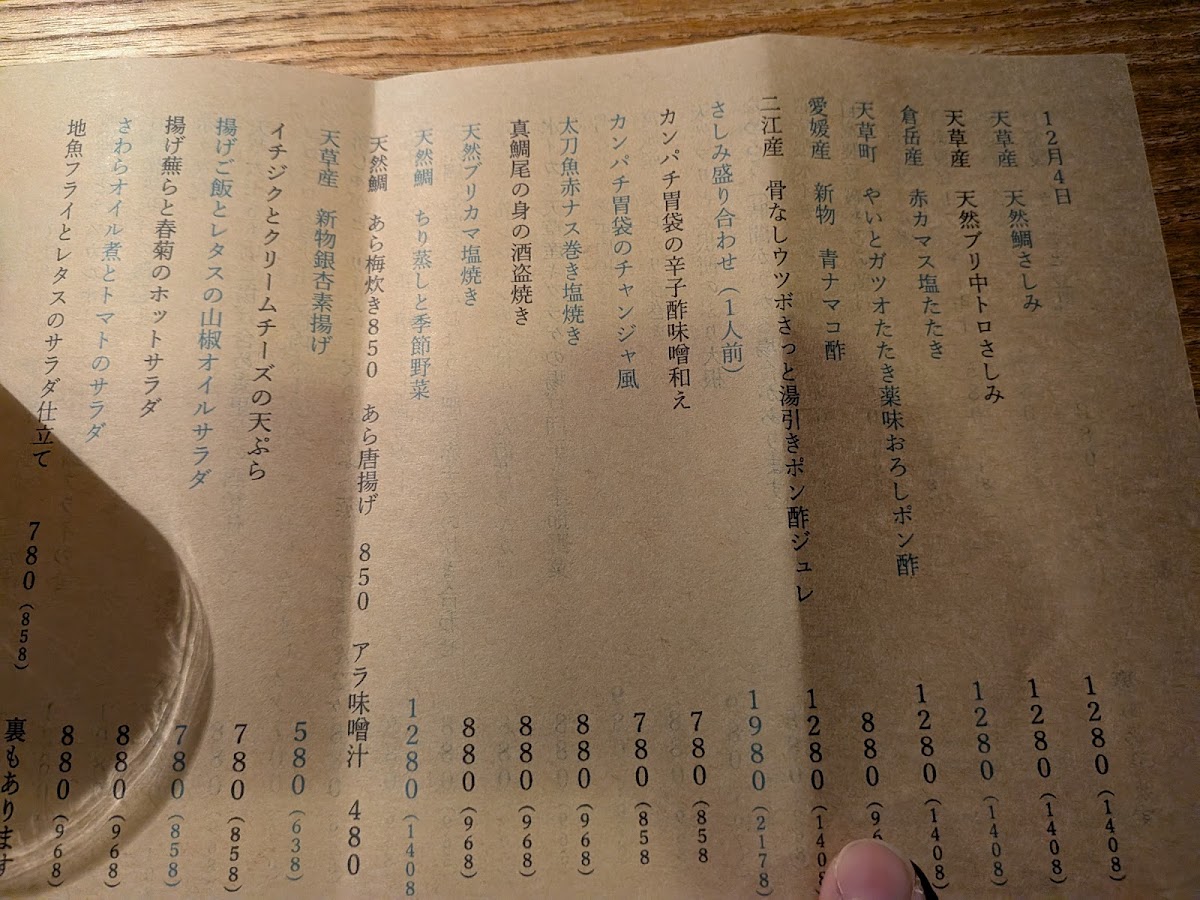 12月4日
天草産 天然鯛さしみ 1280(1408)
天草産 天然ブリ中トロさしみ 1280(1408)
倉岳産 赤カマス塩たたき 1280(1408)
天草町 やいとガツオたたき薬味おろしポン酢 1280(1408)
愛媛産 新物 青ナマコ酢 880(96
二江産 骨なしウツボさっと湯引きポン酢ジュレ 1280(1408
さしみ盛り合わせ(1人前) 1980(2178)
カンパチ胃袋の辛子酢味噌和え 780(858
カンパチ胃袋のチャンジャ風 780(858
太刀魚赤ナス巻き塩焼き 880(968)
真鯛尾の身の酒盗焼き 880(968)
天然ブリカマ塩焼き 880(968)
天然鯛 ちり蒸しと季節野菜 1280(1408
天然鯛 あら梅炊き850 あら唐揚げ 850 アラ味噌汁 480
天草産 新物銀杏素揚げ 580(638)
イチジクとクリームチーズの天ぷら 780(858)
揚げご飯とレタスの山椒オイルサラダ 780(858)
揚げ蕪らと春菊のホットサラダ 880(968)
さわらオイル煮とトマトのサラダ 880(968)
地魚フライとレタスのサラダ仕立て 780(858)
裏もあります